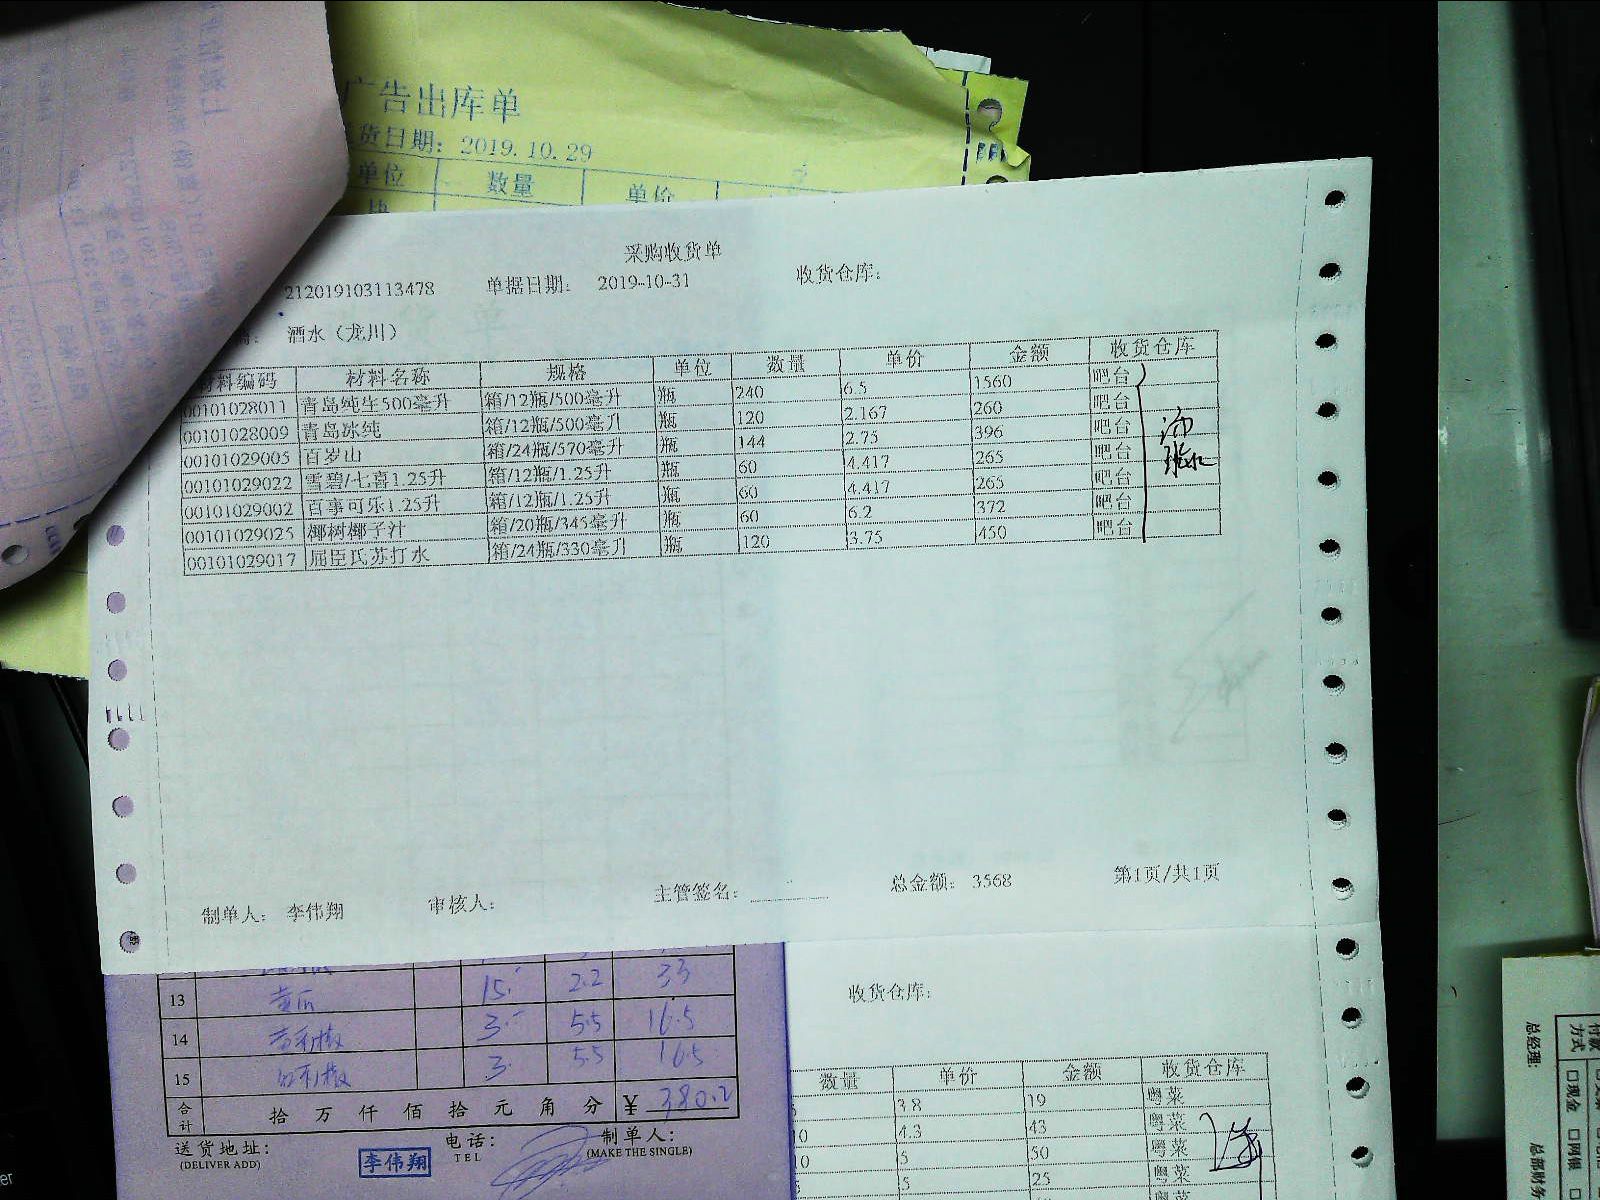 广告出库单
货日期：2019.10.29
单位 数量 单价
采购收货单
212019103113478 单据日期： 2019-10-31 收货仓库：
酒水（龙川）
材料编码 材料名称 规格 单位 数量 单价 金额 收货仓库
00101028011 青岛纯生500毫升 箱/12瓶/500毫升 瓶 240 6.5 1560 吧台
00101028009 青岛冰纯 箱/12瓶/500毫升 瓶 120 2.167 260 吧台
00101029005 百岁山 箱/24瓶/570毫升 瓶 144 2.75 396 吧台
00101029022 雪碧/七喜1.25升 箱/12瓶/1.25升 瓶 60 4.417 265 吧台
00101029002 百事可乐1.25升 箱/12瓶/1.25升 瓶 60 4.417 265 吧台
00101029025 椰树椰子汁 箱/20瓶/345毫升 瓶 60 6.2 372 吧台
00101029017 屈臣氏苏打水 箱/24瓶/330毫升 瓶 120 3.75 450 吧台
制单人： 李伟翔 审核人： 主管签名： 总金额： 3568 第1页/共1页
13 黄瓜 15. 2.2 33
14 3. 5.5 16.5
15 红利椒 3. 5.5 16.5
合计 拾 万 仟 佰 拾 元 角 分 ¥ 380.2
送货地址： 电话： 制单人：
(DELIVER ADD) TEL (MAKE THE SINGLE)
李伟翔
收货仓库：
数量 单价 金额 收货仓库
3.8 19 粤菜
4.3 43 粤菜
5 50 粤菜
5 25 粤菜
粤菜
总经理：
付款方式
□现金
□网银
总部财务